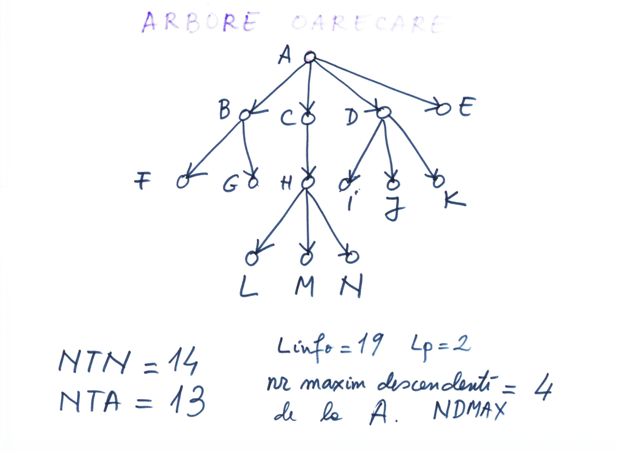 ARBORE OARECARE
A
B C D E
F G H i J K
L M N
NTN = 14 Linfo = 19 Lp = 2
NTA = 13 nr maxim descendenti = 4
de la A. NDMAX